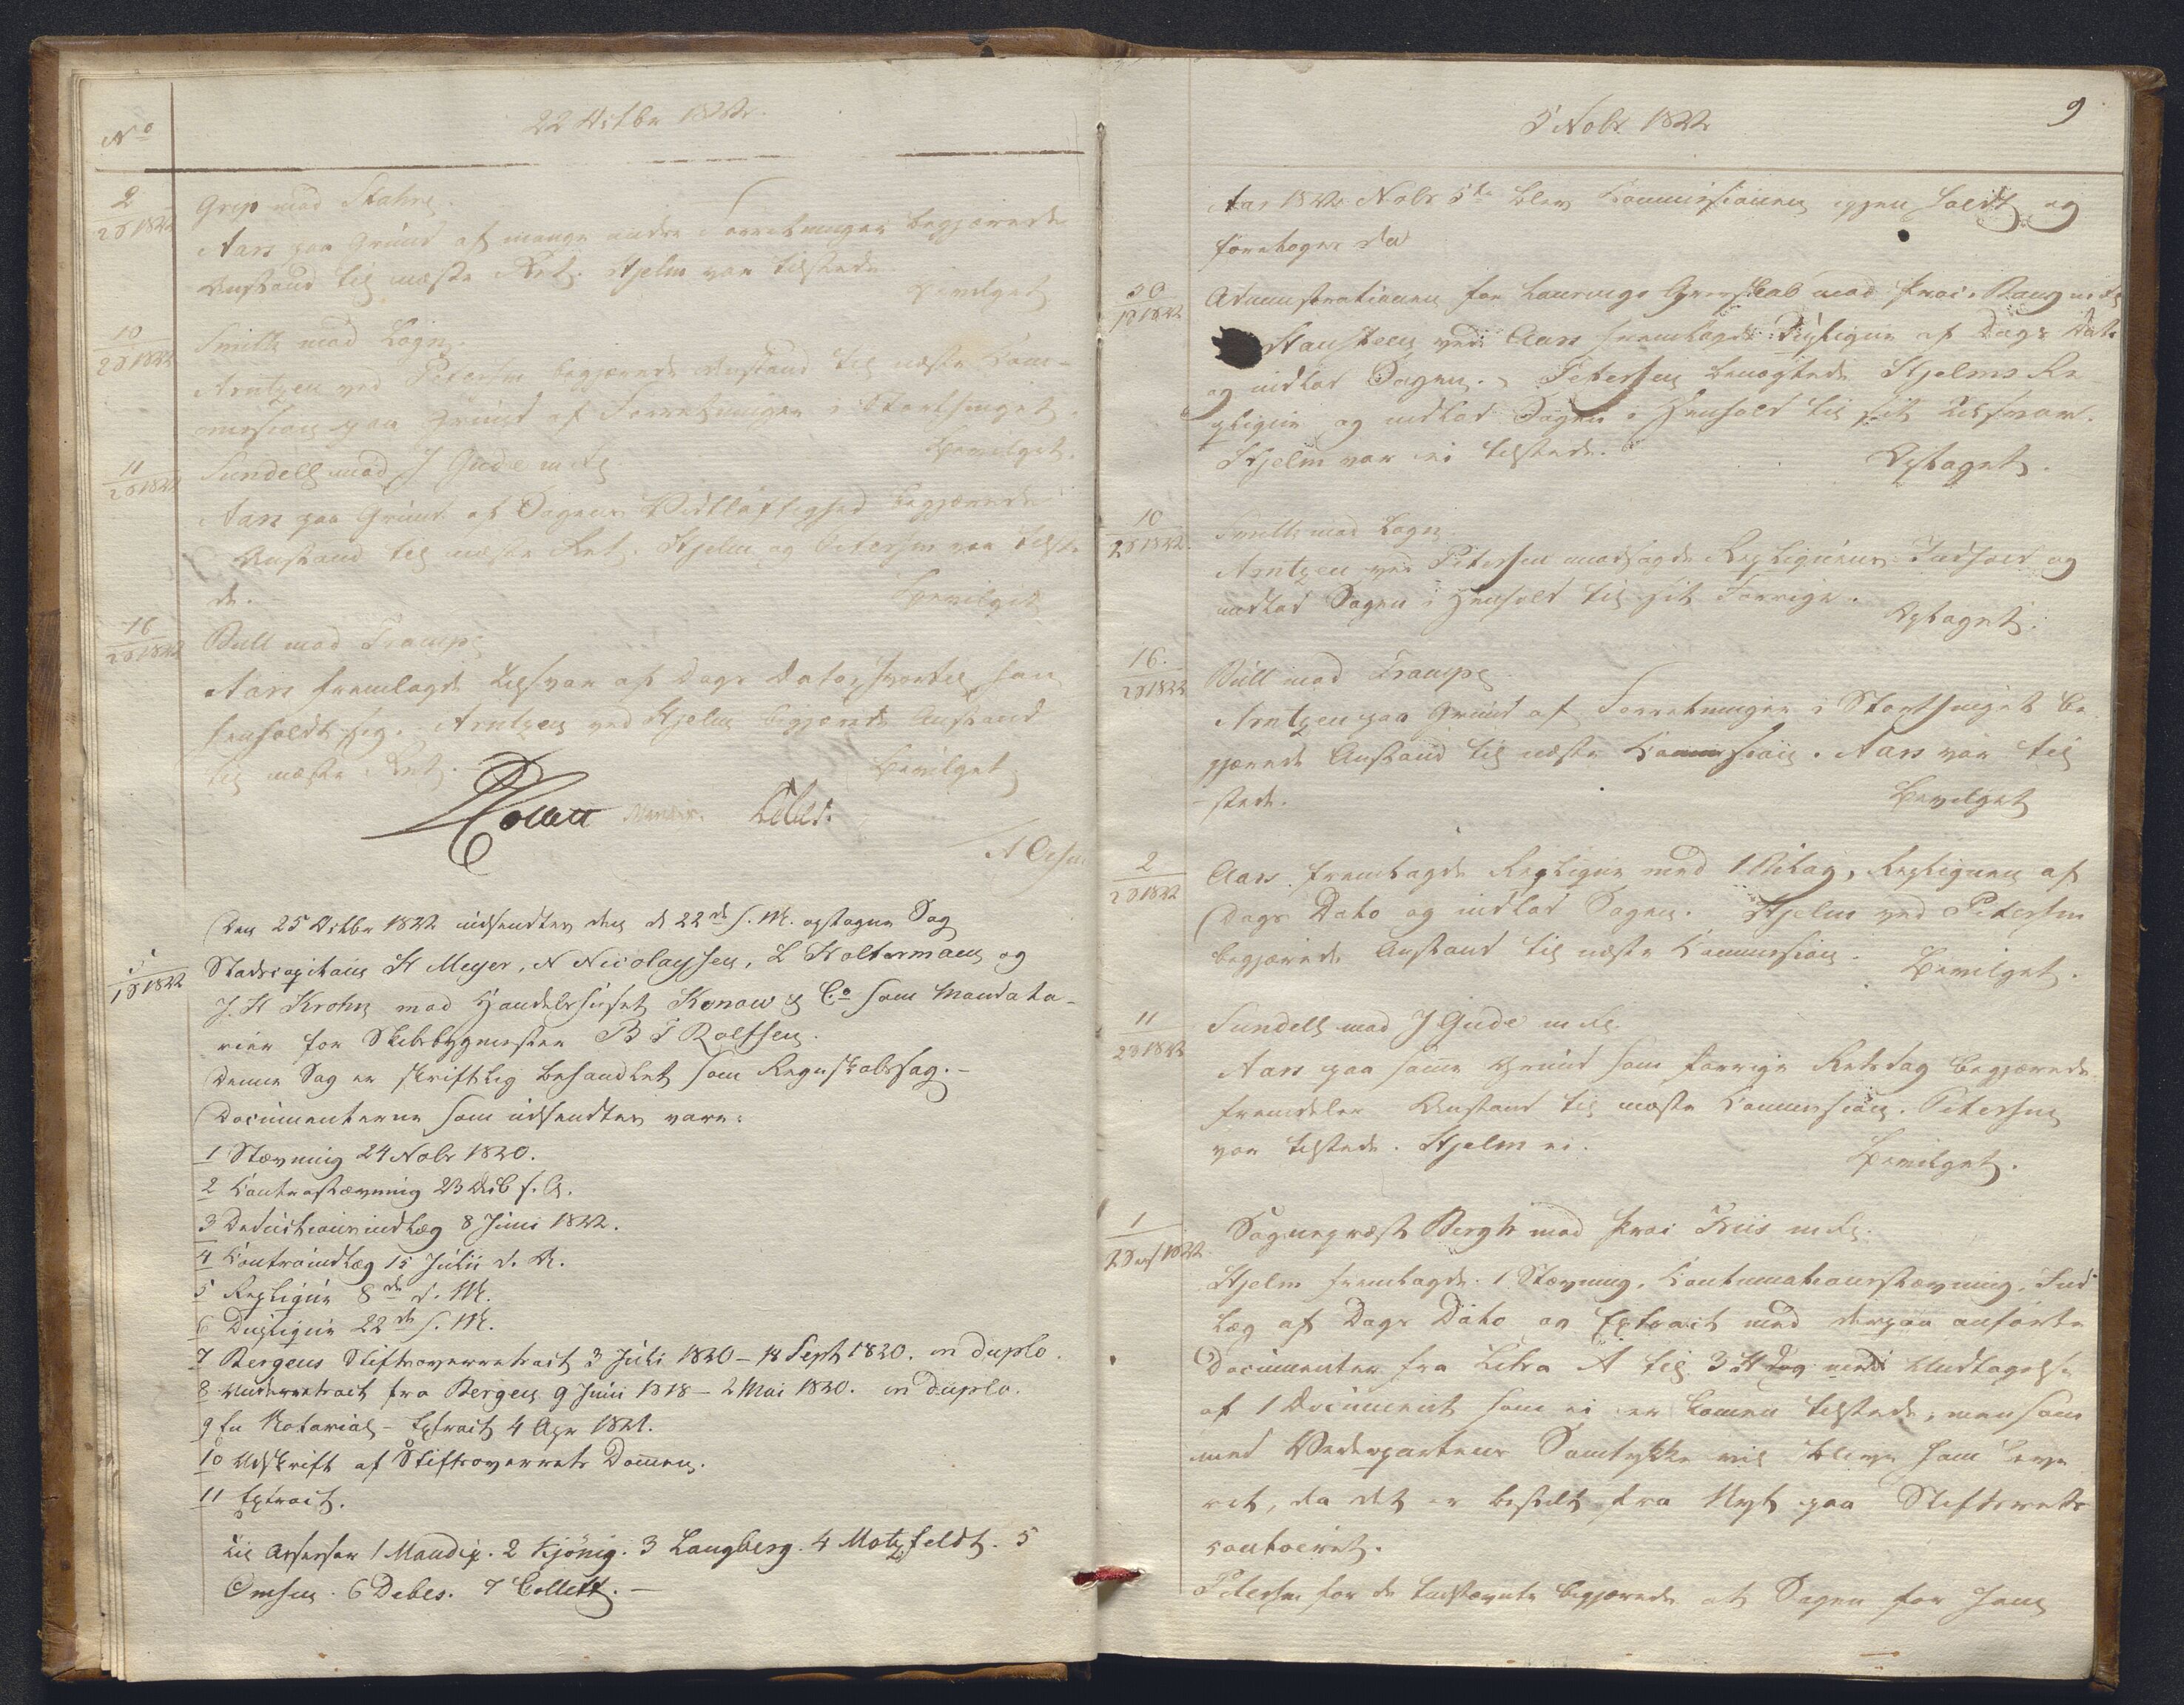 No
22 Octbr 1822.
2
2 S 1822
Grip mod Stahre
Aars paa Grund af mange andre Forretninger begjærede
Anstand til næste Ret. Hjelm var tilstede
bevilget
10
2 S 1822
Smith mod Logn
Arntzen ved Petersen begjærede Anstand til næste Com-
mission paa Grund af Forretninger i Storthinget.
bevilget.
11
2 S 1822
Sundell mod J Gude m fl
Aars paa Grund af Sagens Vidtløftighed begjærede
Anstand til næste Ret. Hjelm og Petersen var tilste
de.
bevilget
16
2 S 1822
Bull mod Trampe
Aars fremlagde Tilsvar af Dags Dato, hvortil han
henholdt sig. Arntzen ved Hjelm begjærede Anstand
til næste Ret.
bevilget
Collett Mandix. Debes.
A Omsen
Den 25 Octbr 1822 udsendtes den d 22de s. M. optagne Sag
5
1 S 1822
Stadscapitain H Meyer, N Nicolaysen, L Holtermann og
J. H Krohn mod Handelshuset Konow & Co som Mandata-
rier for Skibsbygmester B S Rolfsen.
Denne Sag er skriftlig behandlet som Regnskabssag.-
Documenterne som udsendtes vare:
1 Stævning 24 Nobr 1820.
2 Contrastævning 23 Decb s. A.
3 Deductionsindlæg 8 Juni 1822.
4 Contraindlæg 15 Julii d. A.
5 Repliqve 8de d. M.
6 Dupliqve 22de s. M.
7 Bergens Stiftsoverretsact 3 Juli 1820 - 18 Sept 1820. in duplo.
8 Underretsact fra Bergen 9 Juni 1818 - 2 Mai 1820. in duplo.
9 En Notarial-Extract 4 Apr 1821.
10 Udskrift af Stiftsoverrets Dommen.
11 Extract.
Til Assessor 1 Mandix. 2 Kjönig. 3 Langberg. 4 Motzfeldt. 5
Omsen. 6 Debes. 7 Collett. -
5 Nobr 1822
9
Aar 1822 Nobr 5te blev Commissionen igjen holdt og
foretoges da
30
1 S 1822
Administrationen for Laurvigs Grevskab mod Proc. Bang m fl
Hansteen ved Aars fremlagde Dupliqve af Dags Dato
og indlod Sagen. Petersen benægtede Hjelms Re
pliqve og indlod Sagen i Henhold til sit Tilsvar.
Hjelm var ei tilstede.
Optaget.
10
2 S 1822.
Smith mod Logn
Arntzen ved Petersen modsagde Repliqvens Indhold og
indlod Sagen i Henhold til sit Forrige.
Optaget.
16.
2 S 1822
Bull mod Trampe
Arntzen paa Grund af Forretninger i Storthinget be
gjærede Anstand til næste Commission. Aars var til
-stede.
bevilget
2
2 S 1822
Aars fremlagde Repliqve med 1 Bilag, Repliqven af
Dags Dato og indlod Sagen. Hjelm ved Petersen
begjærede Anstand til næste Commission.
bevilget.
11
2 S 1822
Sundell mod J Gude m fl.
Aars paa samme Grund som forrige Retsdag begjærede
fremdeles Anstand til næste Commission. Petersen
var tilstede. Hjelm ei.
bevilget.
1
1822
Sognepræst Bergh mod Proc Friis m fl.
Hjelm fremlagde: 1 Stævning, Continuationsstævning, Ind
læg af Dags Dato og Extract med derpaa anførte
Documenter fra Litra A til 3 H og med Undtagelse
af 1 Document som ei er kommen tilstede, men som
med Vederpartens Samtykke vil blive ham leve
ret, da det er bestilt fra Nyt paa Stiftsrets
contoiret.
Petersen for de Indstævnte begjærede at Sagen for ham